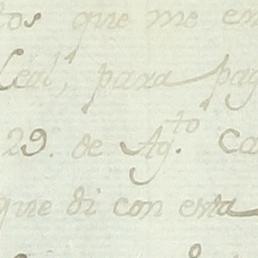 tos que me en
Leal, para pag
29. de Ag.to Ca
que di con esta